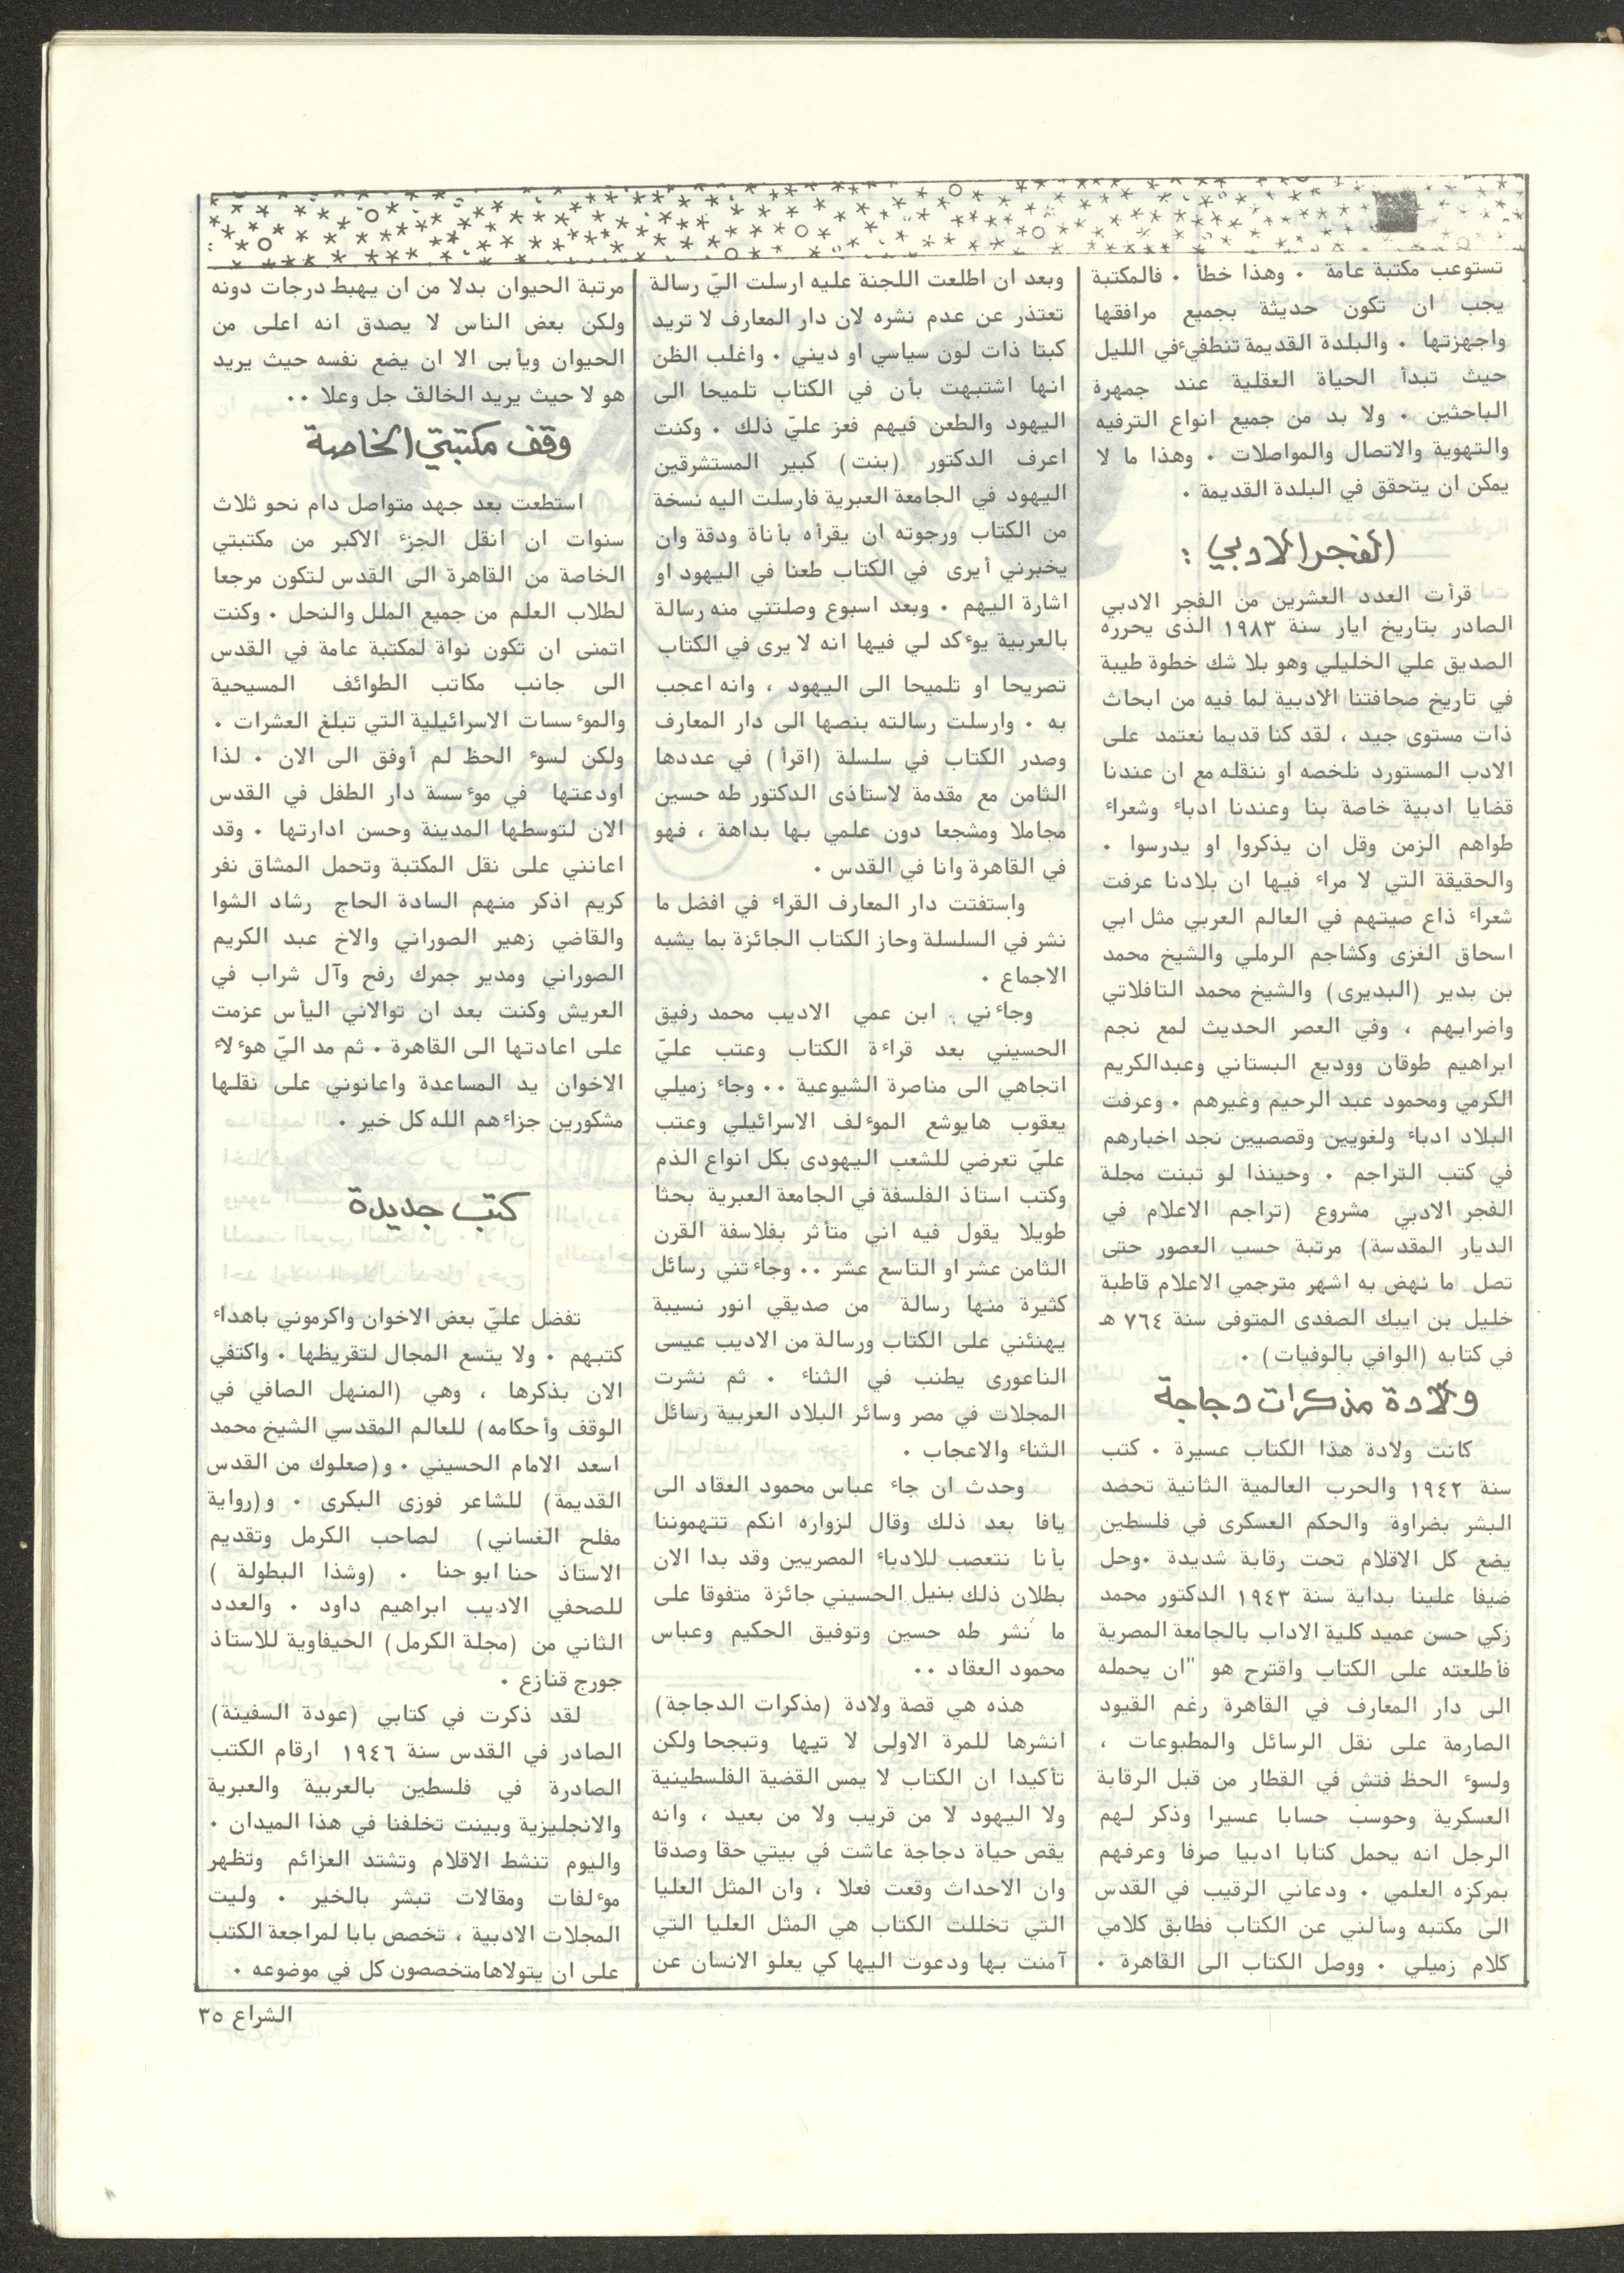 تستوعب مكتبة عامة ٠ وهذا خطأ ٠ فالمكتبة
يجب ان تكون حديثة بجميع مرافقها
واجهزتها ٠ والبلدة القديمة تنطفيء في الليل
حيث تبدأ الحياة العقلية عند جمهرة
الباحثين ٠ ولا بد من جميع انواع الترفيه
والتهوية والاتصال والمواصلات ٠ وهذا ما لا
يمكن ان يتحقق في البلدة القديمة ٠
الفجر الادبي :
قرأت العدد العشرين من الفجر الادبي
الصادر بتاريخ ايار سنة ١٩٨٣ الذى يحرره
الصديق علي الخليلي وهو بلا شك خطوة طيبة
في تاريخ صحافتنا الادبية لما فيه من ابحاث
ذات مستوى جيد ، لقد كنا قديما نعتمد على
الادب المستورد نلخصه او ننقله مع ان عندنا
قضايا ادبية خاصة بنا وعندنا ادباء وشعراء
طواهم الزمن وقل ان يذكروا او يدرسوا ٠
والحقيقة التي لا مراء فيها ان بلادنا عرفت
شعراء ذاع صيتهم في العالم العربي مثل ابي
اسحاق الغزى وكشاجم الرملي والشيخ محمد
بن بدير (البديرى) والشيخ محمد التافلاتي
واضرابهم ، وفي العصر الحديث لمع نجم
ابراهيم طوقان ووديع البستاني وعبدالكريم
الكرمي ومحمود عبد الرحيم وغيرهم ٠ وعرفت
البلاد ادباء ولغويين وقصصيين نجد اخبارهم
في كتب التراجم ٠ وحينذا لو تبنت مجلة
الفجر الادبي مشروع (تراجم الاعلام في
الديار المقدسة) مرتبة حسب العصور حتى
تصل ما نهض به اشهر مترجمي الاعلام قاطبة
خليل بن ايبك الصفدى المتوفى سنة ٧٦٤ هـ
في كتابه (الوافي بالوفيات) ٠
ولادة مذكرات دجاجة
كانت ولادة هذا الكتاب عسيرة ٠ كتب
سنة ١٩٤٢ والحرب العالمية الثانية تحصد
البشر بضراوة والحكم العسكرى في فلسطين
يضع كل الاقلام تحت رقابة شديدة ٠وحل
ضيفا علينا بداية سنة ١٩٤٣ الدكتور محمد
زكي حسن عميد كلية الاداب بالجامعة المصرية
فأطلعته على الكتاب واقترح هو "ان يحمله
الى دار المعارف في القاهرة رغم القيود
الصارمة على نقل الرسائل والمطبوعات ،
ولسوء الحظ فتش في القطار من قبل الرقابة
العسكرية وحوسب حسابا عسيرا وذكر لهم
الرجل انه يحمل كتابا ادبيا صرفا وعرفهم
بمركزه العلمي ٠ ودعاني الرقيب في القدس
الى مكتبه وسألني عن الكتاب فطابق كلامي
كلام زميلي ٠ ووصل الكتاب الى القاهرة ٠
وبعد ان اطلعت اللجنة عليه ارسلت اليّ رسالة
تعتذر عن عدم نشره لان دار المعارف لا تريد
كبتا ذات لون سياسي او ديني ٠ واغلب الظن
انها اشتبهت بأن في الكتاب تلميحا الى
اليهود والطعن فيهم فعز عليّ ذلك ٠ وكنت
اعرف الدكتور (بنت) كبير المستشرقين
اليهود في الجامعة العبرية فارسلت اليه نسخة
من الكتاب ورجوته ان يقرأه بأناة ودقة وان
يخبرني أيرى في الكتاب طعنا في اليهود او
اشارة اليهم ٠ وبعد اسبوع وصلتني منه رسالة
بالعربية يوءكد لي فيها انه لا يرى في الكتاب
تصريحا او تلميحا الى اليهود ، وانه اعجب
به ٠ وارسلت رسالته بنصها الى دار المعارف
وصدر الكتاب في سلسلة (اقرأ) في عددها
الثامن مع مقدمة لاستاذى الدكتور طه حسين
مجاملا ومشجعا دون علمي بها بداهة ، فهو
في القاهرة وانا في القدس ٠
واستفتت دار المعارف القراء في افضل ما
نشر في السلسلة وحاز الكتاب الجائزة بما يشبه
الاجماع ٠
وجاءني ابن عمي الاديب محمد رفيق
الحسيني بعد قراءة الكتاب وعتب عليّ
اتجاهي الى مناصرة الشيوعية ٠٠ وجاء زميلي
يعقوب هايوشع الموءلف الاسرائيلي وعتب
عليّ تعرضي للشعب اليهودى بكل انواع الذم
وكتب استاذ الفلسفة في الجامعة العبرية بحثا
طويلا يقول فيه اني متأثر بفلاسفة القرن
الثامن عشر او التاسع عشر ٠٠ وجاءتني رسائل
كثيرة منها رسالة من صديقي انور نسيبة
يهنئني على الكتاب ورسالة من الاديب عيسى
الناعورى يطنب في الثناء ٠ ثم نشرت
المجلات في مصر وسائر البلاد العربية رسائل
الثناء والاعجاب ٠
وحدث ان جاء عباس محمود العقاد الى
يافا بعد ذلك وقال لزواره انكم تتهموننا
بأنا نتعصب للادباء المصريين وقد بدا الان
بطلان ذلك بنيل الحسيني جائزة متفوقا على
ما نشر طه حسين وتوفيق الحكيم وعباس
محمود العقاد ٠٠
هذه هي قصة ولادة (مذكرات الدجاجة)
انشرها للمرة الاولى لا تيها وتبجحا ولكن
تأكيدا ان الكتاب لا يمس القضية الفلسطينية
ولا اليهود لا من قريب ولا من بعيد ، وانه
يقص حياة دجاجة عاشت في بيتي حقا وصدقا
وان الاحداث وقعت فعلا ، وان المثل العليا
التي تخللت الكتاب هي المثل العليا التي
آمنت بها ودعوت اليها كي يعلو الانسان عن
مرتبة الحيوان بدلا من ان يهبط درجات دونه
ولكن بعض الناس لا يصدق انه اعلى من
الحيوان ويأبى الا ان يضع نفسه حيث يريد
هو لا حيث يريد الخالق جل وعلا ٠٠
وقف مكتبتي الخاصة
استطعت بعد جهد متواصل دام نحو ثلاث
سنوات ان انقل الجزء الاكبر من مكتبتي
الخاصة من القاهرة الى القدس لتكون مرجعا
لطلاب العلم من جميع الملل والنحل ٠ وكنت
اتمنى ان تكون نواة لمكتبة عامة في القدس
الى جانب مكاتب الطوائف المسيحية
والموءسسات الاسرائيلية التي تبلغ العشرات ٠
ولكن لسوء الحظ لم أوفق الى الان ٠ لذا
اودعتها في موءسسة دار الطفل في القدس
الان لتوسطها المدينة وحسن ادارتها ٠ وقد
اعانني على نقل المكتبة وتحمل المشاق نفر
كريم اذكر منهم السادة الحاج رشاد الشوا
والقاضي زهير الصوراني والاخ عبد الكريم
الصوراني ومدير جمرك رفح وآل شراب في
العريش وكنت بعد ان توالاني اليأس عزمت
على اعادتها الى القاهرة ٠ ثم مد اليّ هوءلاء
الاخوان يد المساعدة واعانوني على نقلها
مشكورين جزاءهم الله كل خير ٠
كتب جديدة
تفضل عليّ بعض الاخوان واكرموني باهداء
كتبهم ٠ ولا يتسع المجال لتقريظها ٠ واكتفي
الان بذكرها ، وهي (المنهل الصافي في
الوقف وأحكامه) للعالم المقدسي الشيخ محمد
اسعد الامام الحسيني ٠ و(صعلوك من القدس
القديمة) للشاعر فوزى البكرى ٠ و(رواية
مفلح الغساني) لصاحب الكرمل وتقديم
الاستاذ حنا ابو حنا ٠ (وشذا البطولة )
للصحفي الاديب ابراهيم داود ٠ والعدد
الثاني من (مجلة الكرمل) الحيفاوية للاستاذ
جورج قنازع ٠
لقد ذكرت في كتابي (عودة السفينة)
الصادر في القدس سنة ١٩٤٦ ارقام الكتب
الصادرة في فلسطين بالعربية والعبرية
والانجليزية وبينت تخلفنا في هذا الميدان ٠
واليوم تنشط الاقلام وتشتد العزائم وتظهر
موءلفات ومقالات تبشر بالخير ٠ وليت
المجلات الادبية ، تخصص بابا لمراجعة الكتب
على ان يتولاها متخصصون كل في موضوعه ٠
الشراع ٣٥